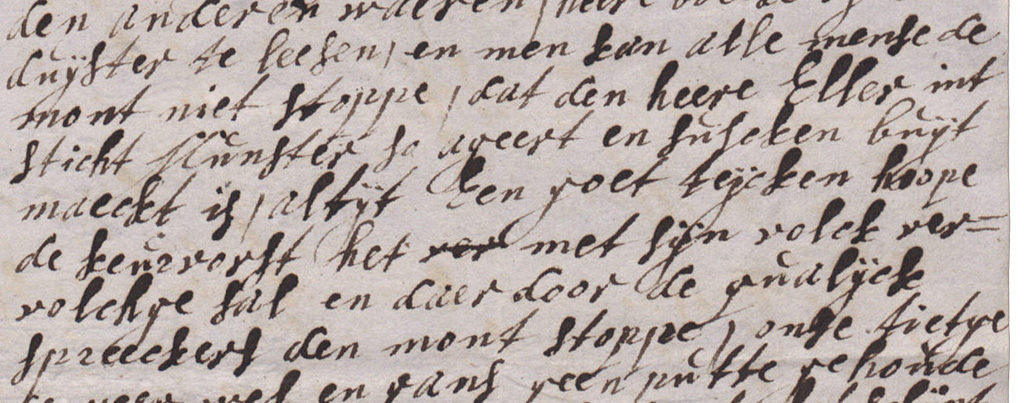 den anderen waeren, heere
duijster te leesen, en men kan alle mense de
mont niet stoppe, dat den heere Eller int
sticht Munster so ageert en sulcken buijt
maeckt is, altijt Een goet teijcken hoope
de keurvorst het ver met sijn volck ver=
volchge sal en daer door de qualijck
spreeckers den mont stoppe, onse tietge
seer wel en gans geen putte gehoude